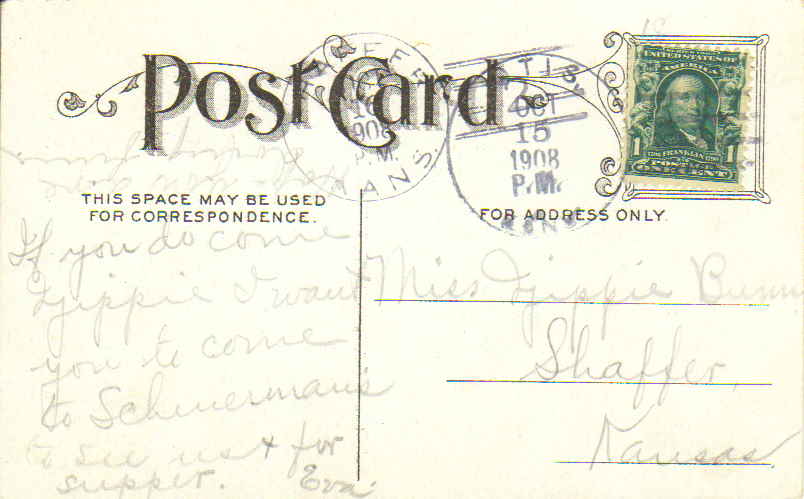 Post Card
SHAFFER
1908
P.M.
KANS
OTIS
OCT
15
1908
P.M.
KANS
UNITED STATES OF
AMERICA
1706 FRANKLIN 1790
1 POSTAGE 1
ONE CENT
THIS SPACE MAY BE USED
FOR CORRESPONDENCE.
FOR ADDRESS ONLY.
If you do come
Gippie I want
you to come
to Scheuerman's
to see us & for
supper. Eva
Miss Gippie Bunn
Shaffer,
Kansas,